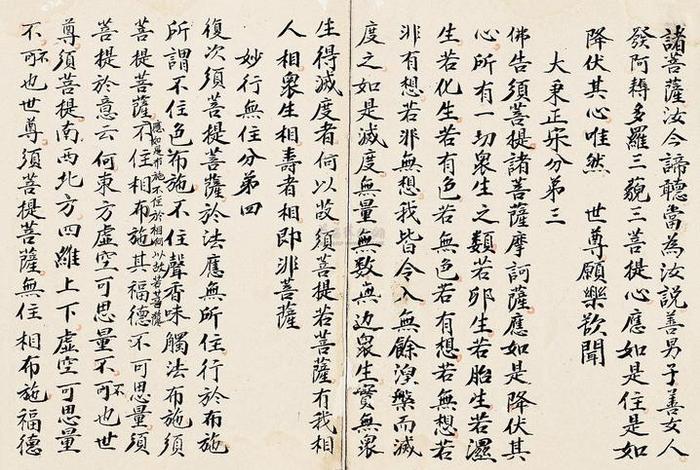 諸菩薩汝今諦聽當為汝說善男子善女人
發阿耨多羅三藐三菩提心應如是住是如
降伏其心唯然 世尊願樂欲聞
大乘正宗分第三
佛告須菩提諸菩薩摩訶薩應如是降伏其
心所有一切眾生之類若卵生若胎生若濕
生若化生若有色若無色若有想若無想若
非有想若非無想我皆令入無餘涅槃而滅
度之如是滅度無量無数無边眾生實無眾
生得滅度者何以故須菩提若菩薩有我相
人相眾生相壽者相即非菩薩
妙行無住分第四
復次須菩提菩薩於法應無所住行於布施
所謂不住色布施不住聲香味觸法布施須
應如是布施不住於相何以故若菩薩
菩提菩薩不住相布施其福德不可思量須
菩提於意云何東方虛空可思量不不可也世
尊須菩提南西北方四維上下虛空可思量
不不可也世尊須菩提菩薩無住相布施福德